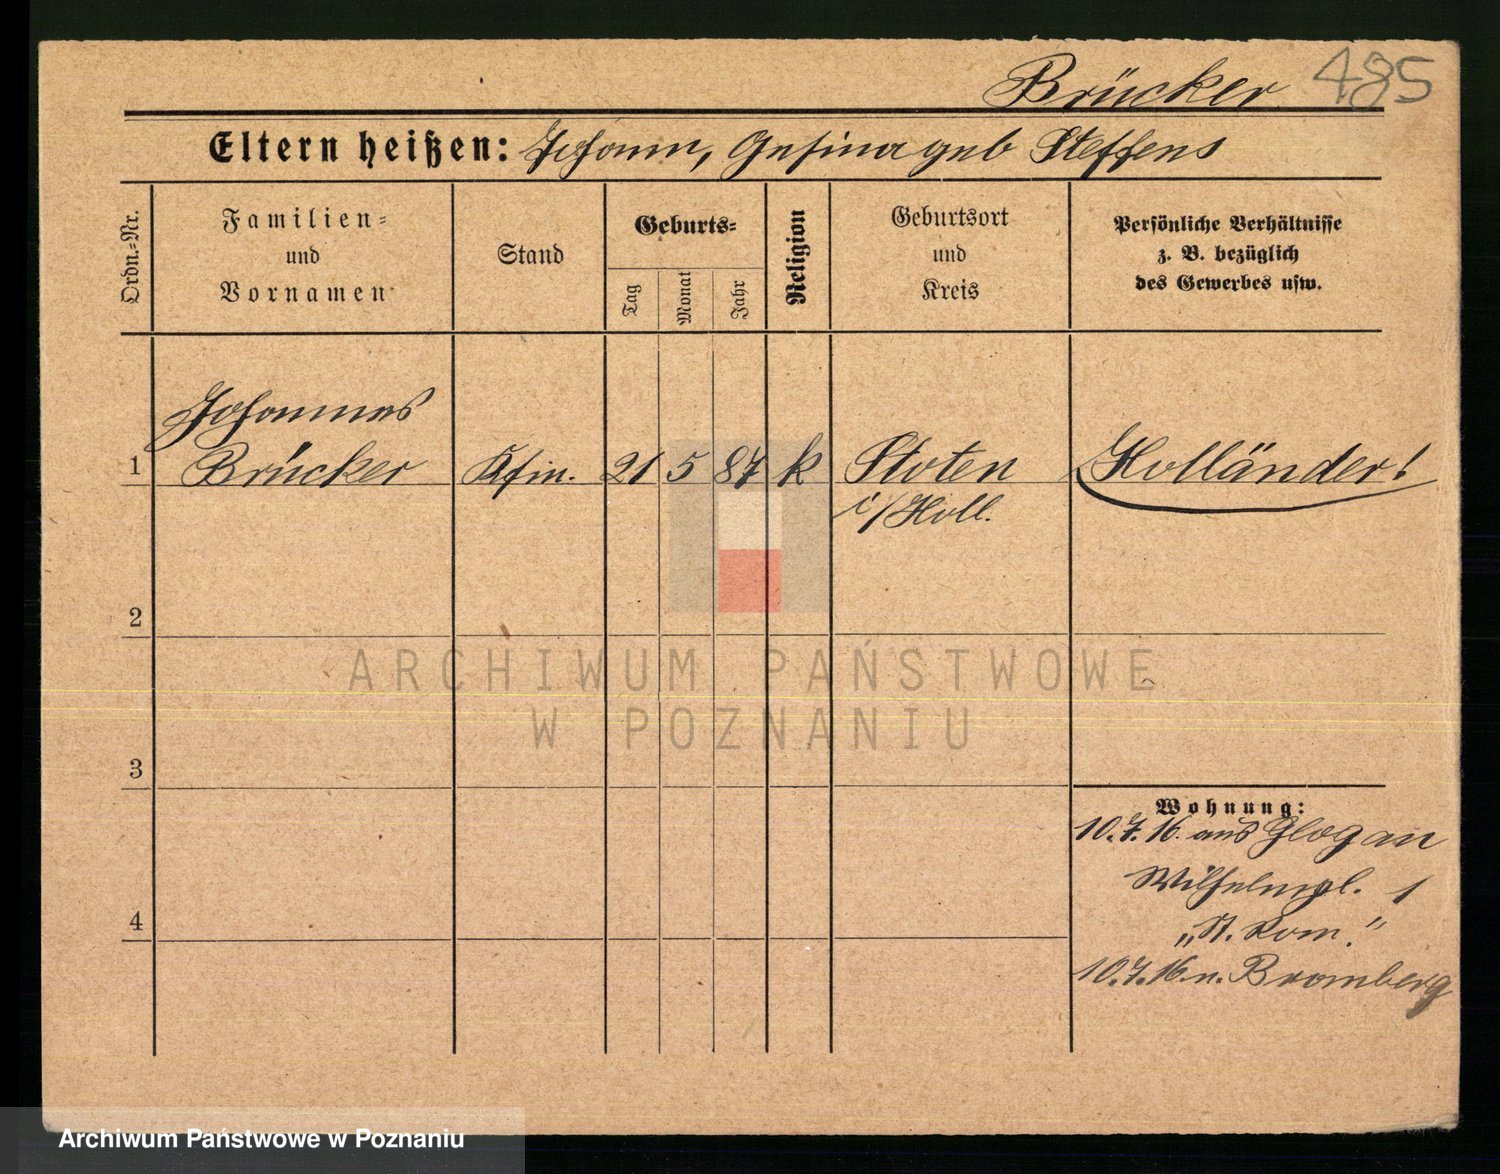 Brücker 485
Eltern heißen: Johann, Gesina geb Steffens
Ordn.-Nr.
Familien-
und
Vornamen
Stand
Geburts-
Tag
Monat
Jahr
Religion
Geburtsort
und
Kreis
Persönliche Verhältnisse
z. B. bezüglich
des Gewerbes usw.
Johannes
1 Brücker Kfm. 21 5 87 k Sloten Holländer!
i/Holl.
2
ARCHIWUM PAŃSTWOWE
W POZNANIU
3
Wohnung:
10.7.16. aus Glogau
Wilhelmpl. 1
4
„H. Rom."
10.7.16. n. Bromberg
Archiwum Państwowe w Poznaniu